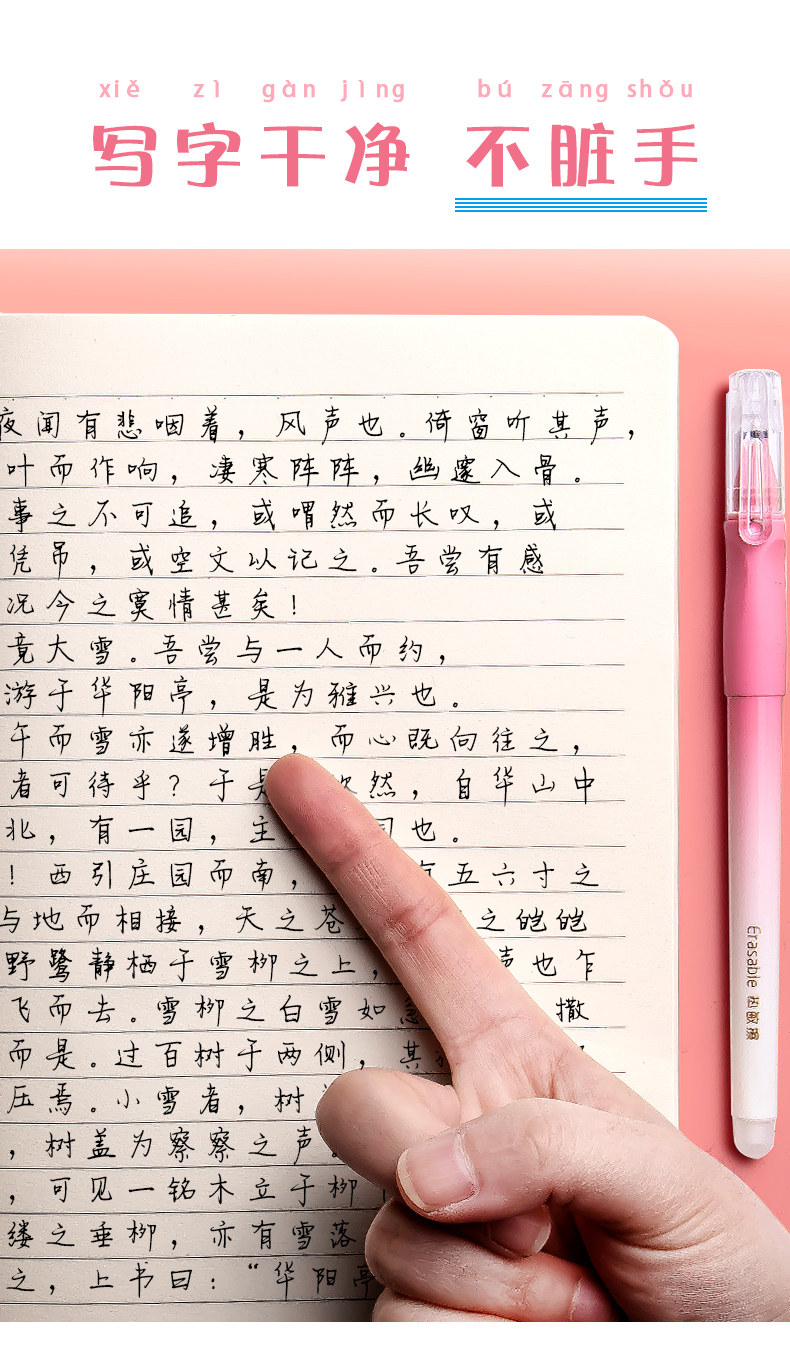 xiě zì gàn jìng bú zāng shǒu
写字干净 不脏手
夜闻有悲咽着，风声也。倚窗听其声，
叶而作响，凄寒阵阵，幽邃入骨。
事之不可追，或喟然而长叹，或
凭吊，或空文以记之。吾尝有感
况今之寞情甚矣！
竟大雪。吾尝与一人而约，
游于华阳亭，是为雅兴也。
午而雪亦遂增胜，而心既向往之，
者可待乎？于是 然，自华山中
北，有一园，主 园也。
！西引庄园而南， 有五六寸之
与地而相接，天之苍 之皑皑
野鹭静栖于雪柳之上， 声也乍
飞而去。雪柳之白雪如 撒
而是。过百树于两侧，其
压焉。小雪者，树
，树盖为察察之声
，可见一铭木立于柳
缕之垂柳，亦有雪落
之，上书曰：“华阳亭
Erasable 热敏擦